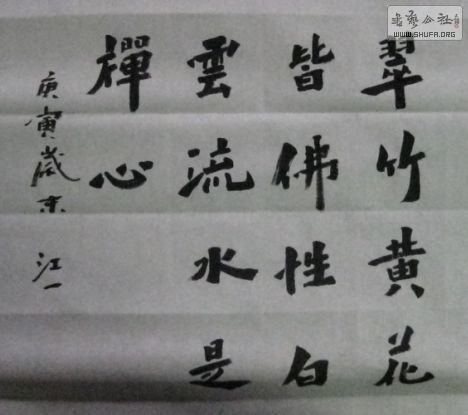 翠竹黄花
皆佛性白
雲流水是
禪心
庚寅歲末 江一
書藝公社
WWW.SHUFA.ORG